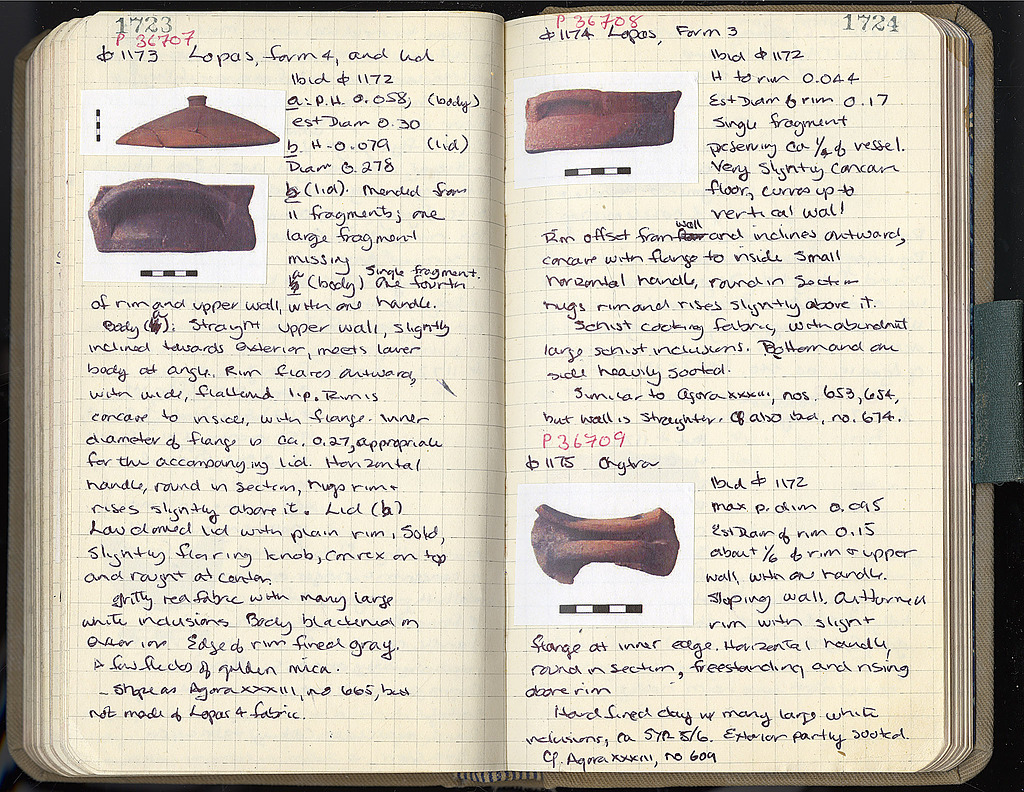 1723
P 36707
φ 1173 Lopas, form 4, and lid
Ibid φ 1172
a: P.H. 0.058, (body)
est Diam 0.30
b H. 0.079 (lid)
Diam 0.278
b (lid). Mended from
11 fragments; one
large fragment
missing
a (body) Single fragment. one fourth
of rim and upper wall, with one handle.
Body (a): Straight upper wall, slightly
inclined towards exterior, meets lower
body at angle. Rim flares outward,
with wide, flattened lip. Rim is
concave to inside, with flange. Inner
diameter of flange is ca. 0.27, appropriate
for the accompanying lid. Horizontal
handle, round in section, hugs rim +
rises slightly above it. Lid (b)
Low domed lid with plain rim, Solid,
slightly flaring knob, convex on top
and at center.
Gritty red fabric with many large
white inclusions Body blackened on
exterior. Edge of rim fired gray.
A few flecks of golden mica.
- Shape as Agora XXXIII, no 665, but
not made of Lopas 4 fabric.
1724
P 36708
φ 1174 Lopas, Form 3
Ibid φ 1172
H to rim 0.044
Est Diam of rim 0.17
Single fragment
preserving ca 1/4 of vessel.
Very slightly concave
floor, curves up to
vertical wall
Rim offset from wall and inclines outward,
concave with flange to inside Small
horizontal handle, round in section
hugs rim and rises slightly above it.
Schist cooking fabric, with abundant
large schist inclusions. Bottom and one
side heavily sooted.
Similar to Agora XXXIII, nos. 653, 654,
but wall is straighter. Cf also ibid, no. 674.
P 36709
φ 1175 Chytra
Ibid φ 1172
max p. dim 0.095
Est Diam of rim 0.15
about 1/6 of rim + upper
wall, with one handle.
Sloping wall. Outturned
rim with slight
flange at inner edge. Horizontal handle,
round in section, freestanding and rising
above rim
Hard fired clay w many large white
inclusions, ca 5YR 5/6. Exterior partly sooted.
Cf. Agora XXXIII, no 609